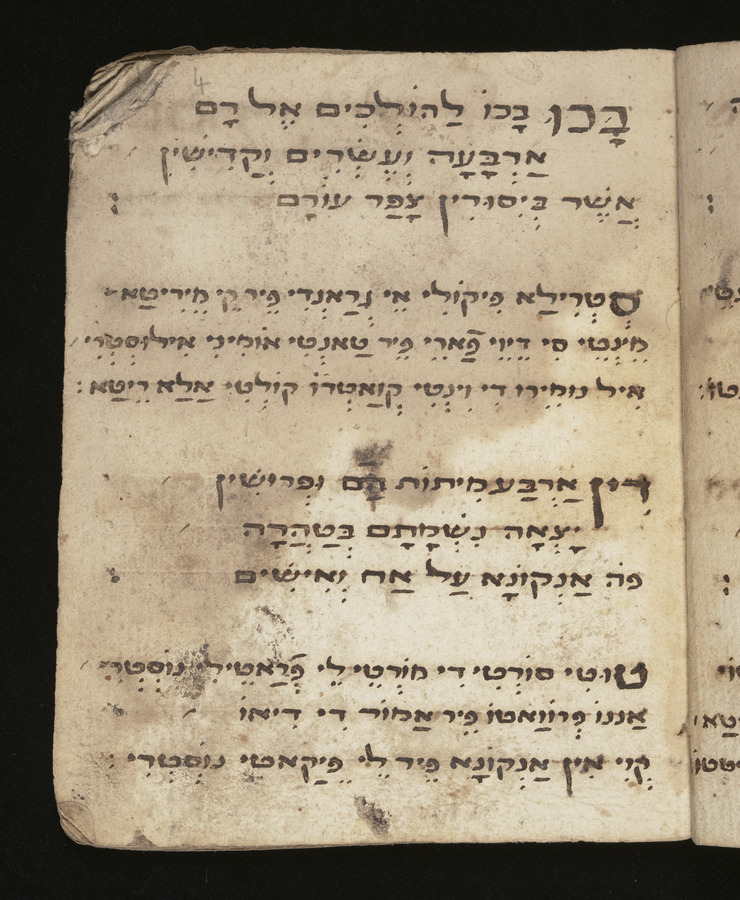 4
בָּכוּ בָּכוֹ לַהוֹלְכִים אֶל רָם
אַרְבָּעָה וְעֶשְׂרִים וְקַדִישִׁין
אֲשֶׁר בְּיִסוּרִין צָפַד עוֹרָם :
סְטְרִילַא פִיקוֹלִי אֵי גְרַאנְדִי פֵּיר קִי מֵירִיטַא
מֵינְטֵי סִי דֵיוֵי פַארֵי פֵּיר טַאנְטִי אוֹמִינִי אִילוּסְטְרִי
אִיל נוּמֵירוֹ דִי וִינְטִי קְוַאטְרוֹ קוֹלְטִי אַלַא וִיטַא :
דוּן אַרְבַּע מִיתוֹת הֵם וּפְרוּשִׁין
יָצְאָה נִשְׁמָתָם בְּטַהֲרָה
פֹּה אַנְקוֹנָא עַל אַח וְאִישִׁים :
טוּטִי סוֹרְטִי דִי מוֹרְטֵי לֵי פְרַאטֵילִי נוֹסְטְרִי
אַננוֹ פְּרוֹוַאטוֹ פֵּיר אַמוֹר דִי דִיאוֹ
קְוִי אִין אַנְקוֹנָא פֵּיר לֵי פֵּיקַאטִי נוֹסְטְרִי :